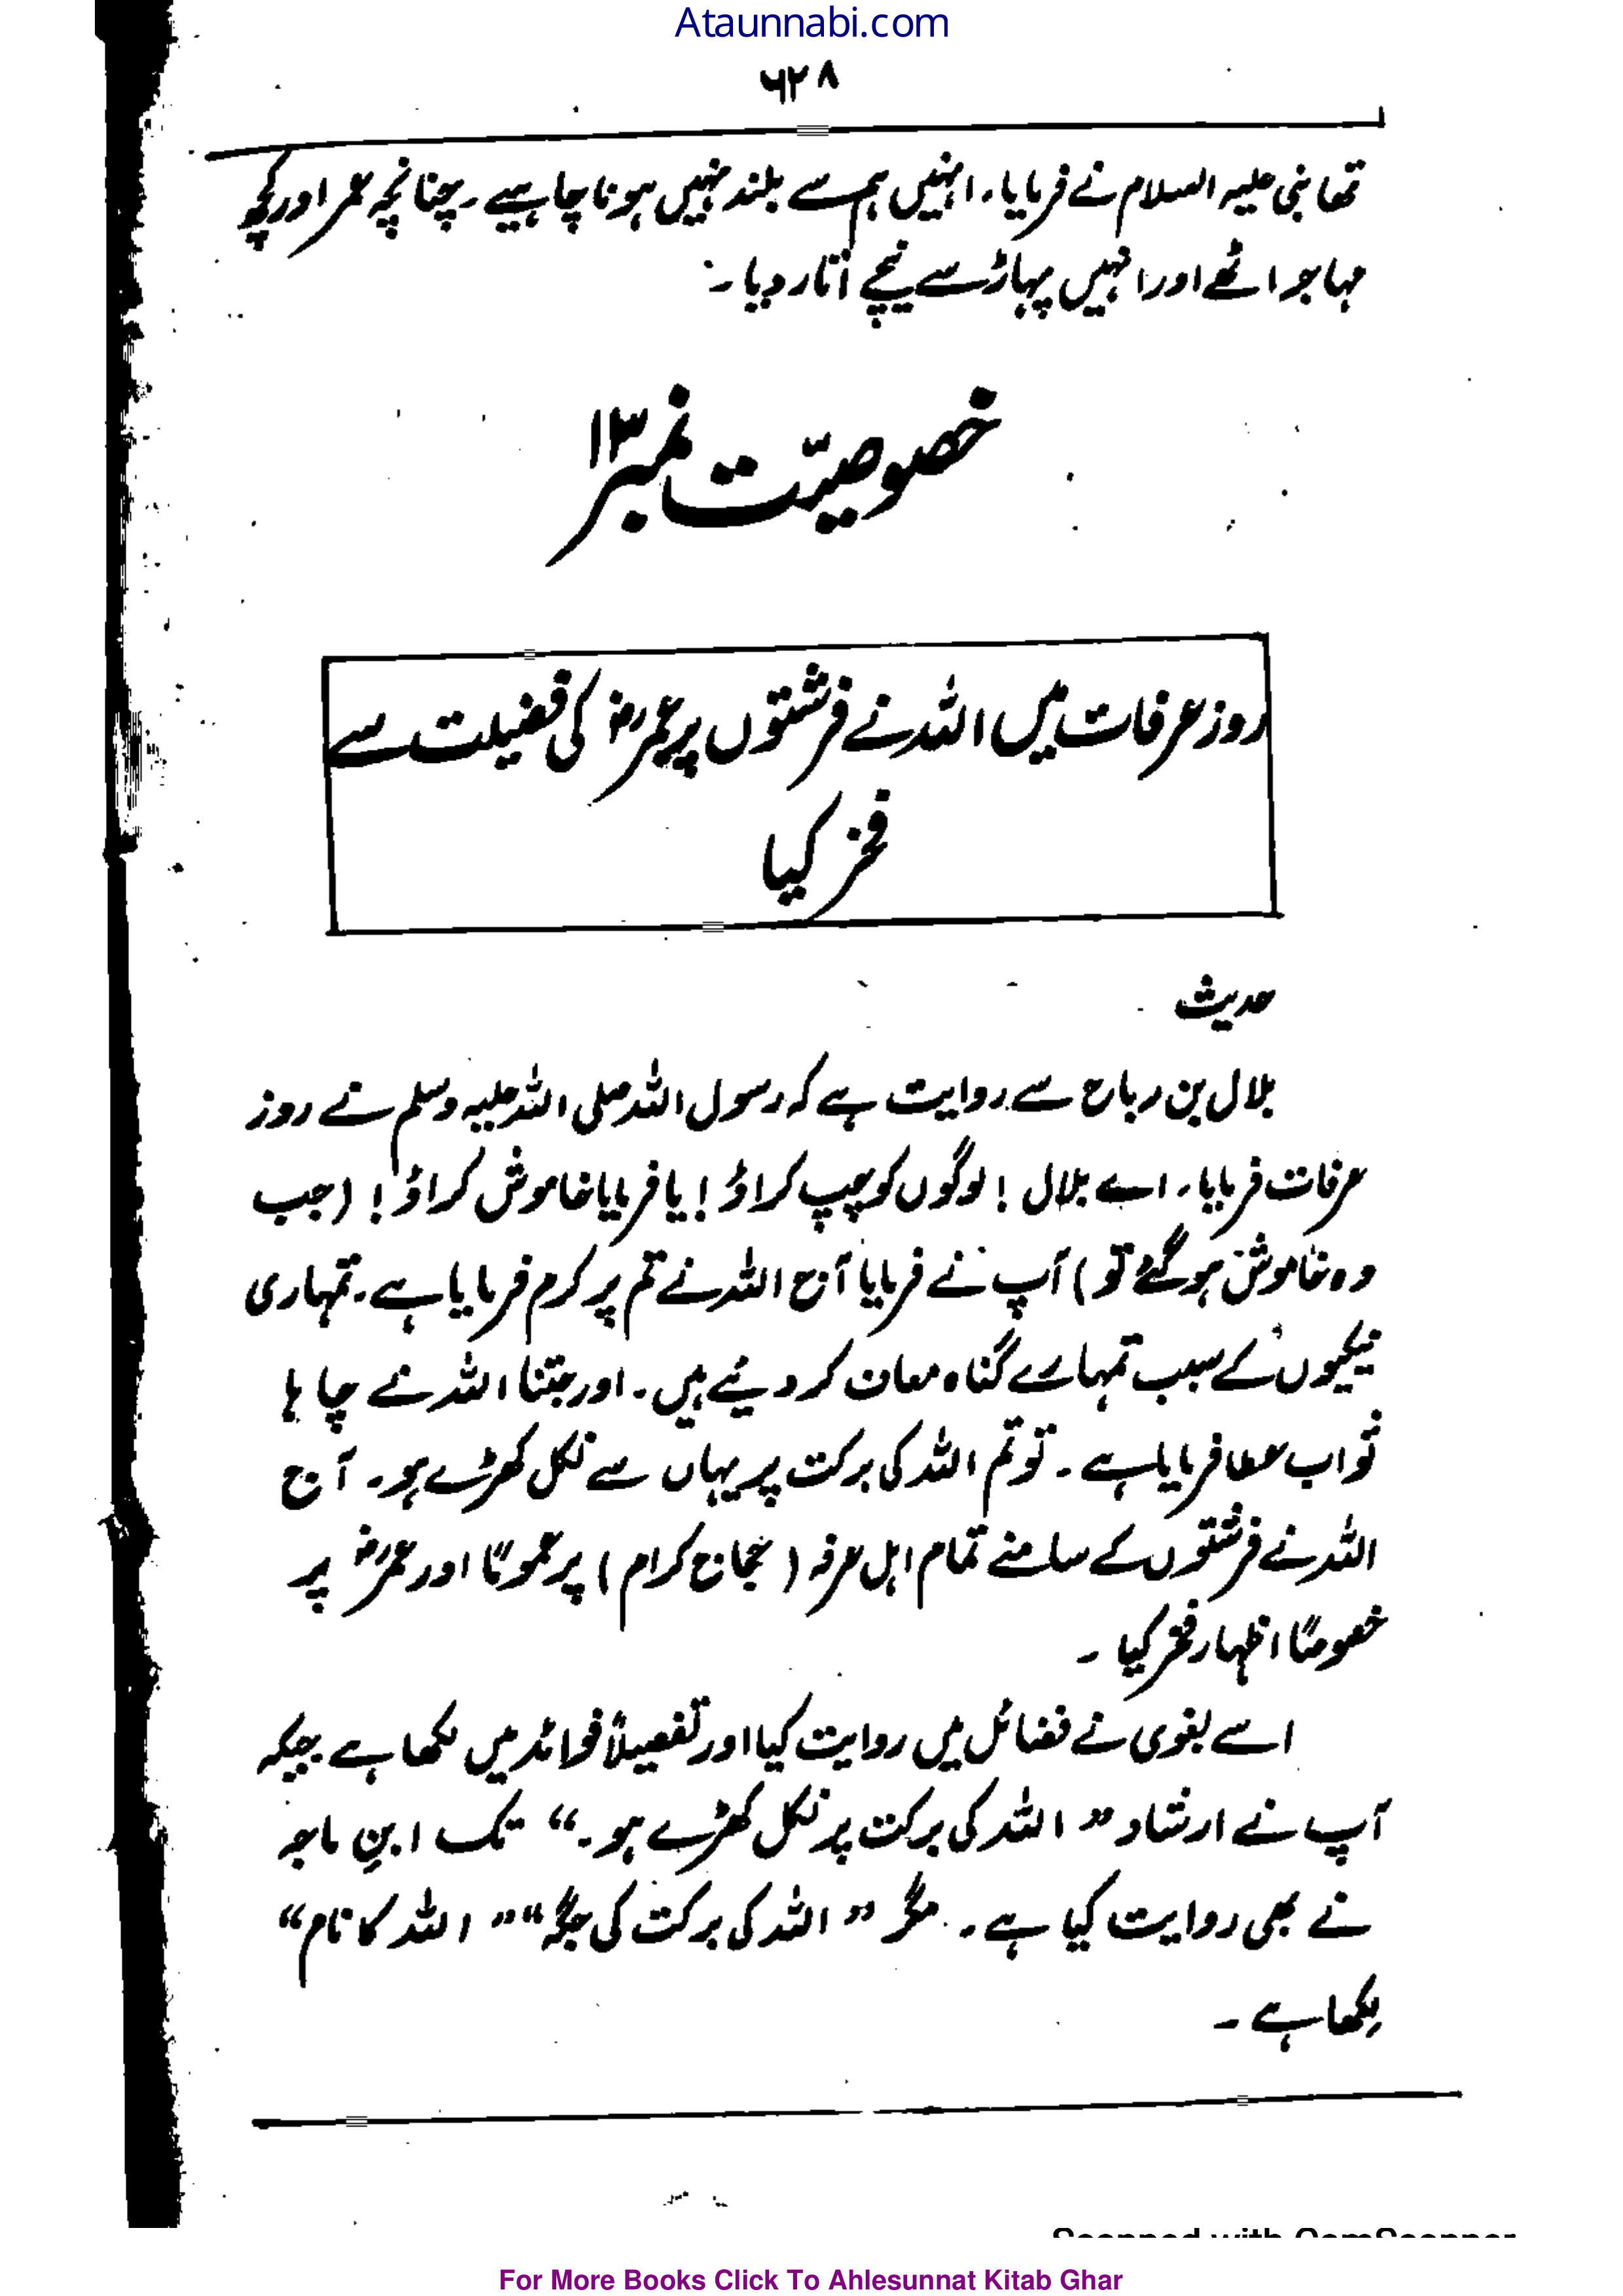 Ataunnabi.com
۶۲۸
تھا نبی علیہ السلام نے فرمایا۔ انہیں ہم سے بلند نہیں ہونا چاہیے۔ چنانچہ عمر اور کچھ
مہاجر اٹھے اور انہیں پہاڑ سے نیچے اتار دیا۔
خصوصیّت نمبر ۱۳
روز عرفات میں اللہ نے فرشتوں پر عمرؓ کی فضیلت سے
فخر کیا
حدیث
بلال بن رباح سے روایت ہے کہ رسول اللہ صلی اللہ علیہ وسلم نے روز
عرفات فرمایا، اے بلال! لوگوں کو چپ کراؤ! یا فرمایا خاموش کراؤ! (جب
وہ خاموش ہو گئے تو) آپ نے فرمایا آج اللہ نے تم پر کرم فرمایا ہے۔ تمہاری
نیکیوں کے سبب تمہارے گناہ معاف کر دیئے ہیں۔ اور جتنا اللہ نے چاہا
ثواب عطا فرمایا ہے۔ تو تم اللہ کی برکت پر یہاں سے نکل کھڑے ہو۔ آج
اللہ نے فرشتوں کے سامنے تمام اہل عرفہ (حجاج کرام) پر عموماً اور عمرؓ پر
خصوصاً اظہار فخر کیا۔
اسے بغوی نے فضائل میں روایت کیا اور تفصیلاً فوائد میں لکھا ہے جبکہ
آپ نے ارشاد ”اللہ کی برکت پر نکل کھڑے ہو۔“ تک ابنِ ماجہ
نے بھی روایت کیا ہے۔ مگر ”اللہ کی برکت کی جگہ“ ”اللہ کا نام“
لِکھا ہے۔
Scanned with CamScanner
For More Books Click To Ahlesunnat Kitab Ghar